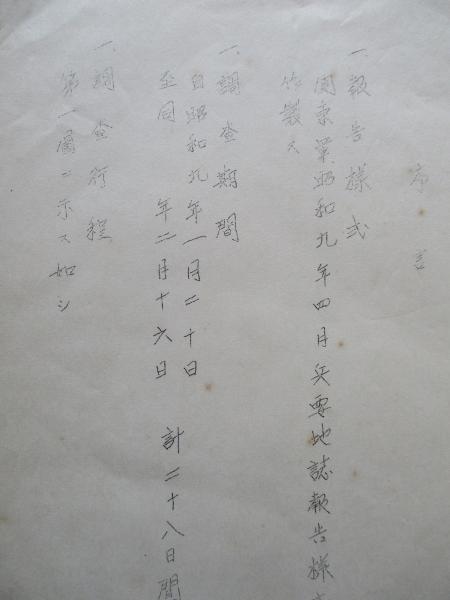 序言
一、報告様式
関東軍昭和九年四月兵要地誌報告様
作製ス
一、調査期間
自昭和九年一月二十日
至同 年二月十六日 計二十八日間
一、調査行程
第一圖ニ示ス如シ